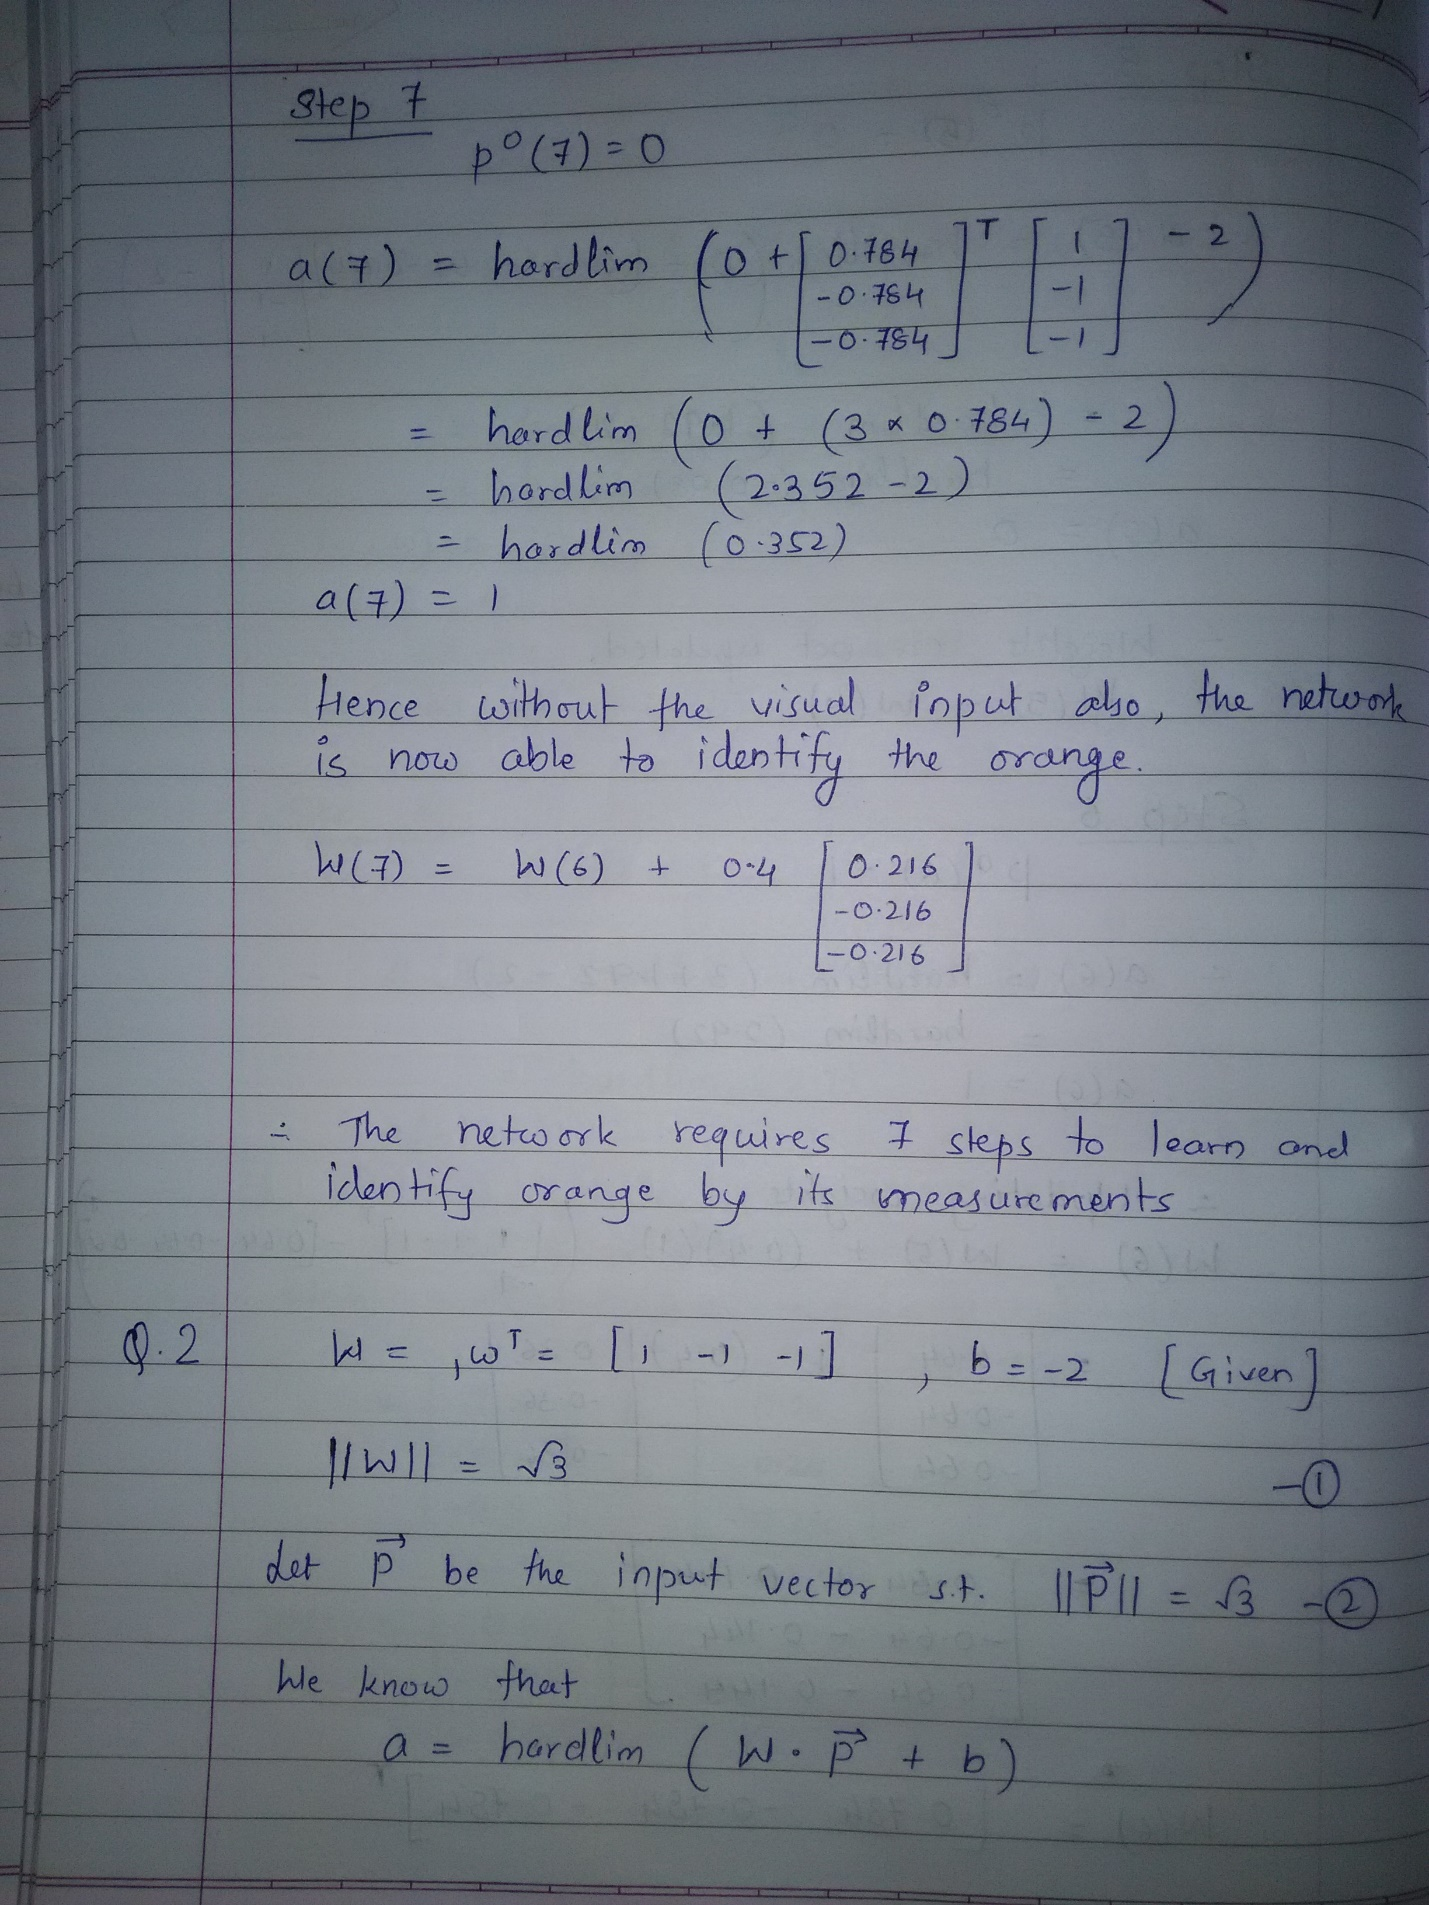 Step 7
p⁰(7) = 0
a(7) = hardlim (0 + [0.784 -0.784 -0.784]ᵀ [1 -1 -1] - 2)
= hardlim (0 + (3 × 0.784) - 2)
= hardlim (2.352 - 2)
= hardlim (0.352)
a(7) = 1
Hence without the visual input also, the network
is now able to identify the orange.
W(7) = W(6) + 0.4 [0.216 -0.216 -0.216]
∴ The network requires 7 steps to learn and
identify orange by its measurements
Q.2 W = ₁wᵀ = [1 -1 -1], b = -2 [Given]
||W|| = √3 -①
Let p⃗ be the input vector s.t. ||p⃗|| = √3 -②
We know that
a = hardlim (W · p⃗ + b)